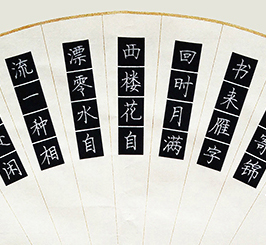 寄锦
书来雁字
回时月满
西楼花自
漂零水自
流一种相
处闲